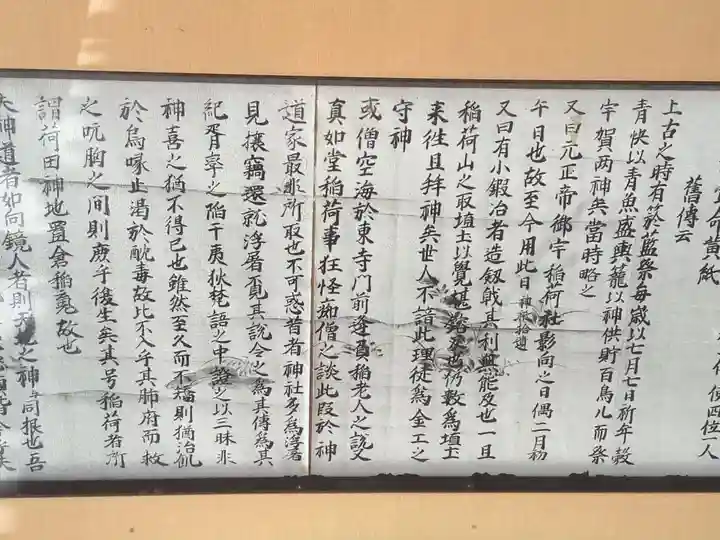 命黄紙 使四位一人
舊傳云
上古之時有於藍祭每歳以七月七日祈年穀
青快以青魚盛輿籠以神供貯百鳥儿而祭
宇賀两神矣當時略之
又曰元正帝御宇稲荷社影向之日偶二月初
午日也故至今用此日神祇拾遺
又曰有小鍛冶者造釼戟其利無能及也一旦
稲荷山之取埴土以覺甚 也仍數為埴土
来往且拜神矣世人不諳此理徒為金工之
守神
或僧空海於東寺門前逢負稲老人之說又
真如堂稲荷事狂怪痴僧之談此叚於神
道家最非所取也不可惑昔者神社多為浮屠
見攘竊還就浮屠覔其說令之為其傳為其
紀胥寧之陥于夷狄梵語之中證之以三昧非
神喜之猶不得已也雖然至久而不熄則猶治飢
於烏喙止渇於酖毒故比不入乎其肺府而救
之吭胸之間則庶乎後生矣其号稲荷者所
謂荷田神地置倉稲䰟故也
夫神道者如向鏡人者則天地之神与同根也吾